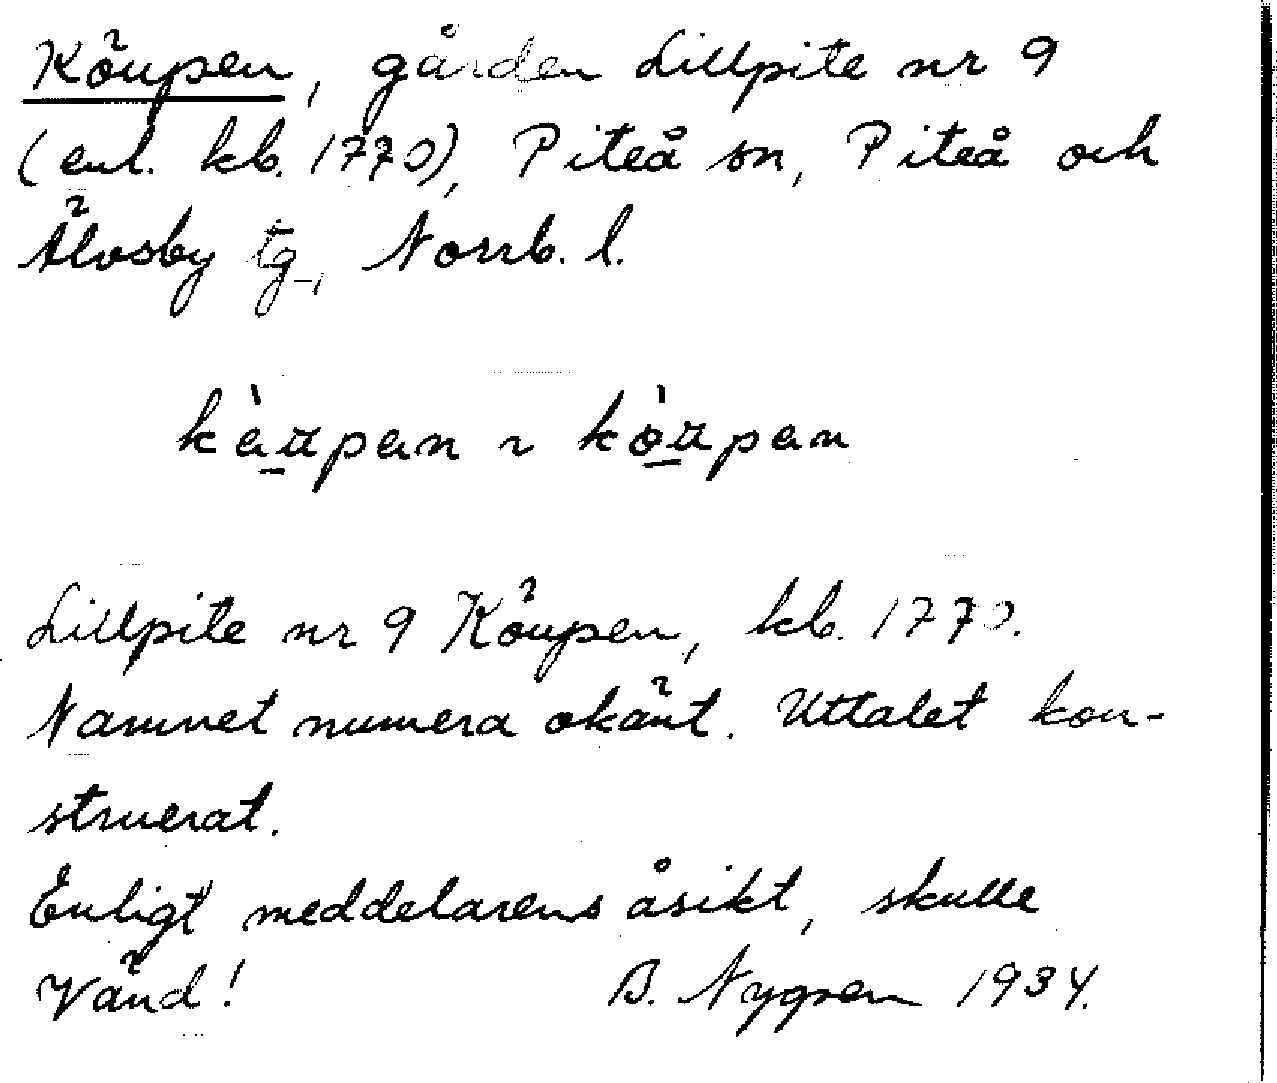 Köupen, gården Lillpite nr 9
(enl. kb. 1770), Piteå sn, Piteå och
Älvsby tg, Norrb. l.
kàu̠pan ~ kòu̠pan
Lillpite nr 9 Köupen, kb. 1770.
Namnet numera okänt. Uttalet kon-
struerat.
Enligt meddelarens åsikt, skulle
Vänd! B. Nygren 1934.